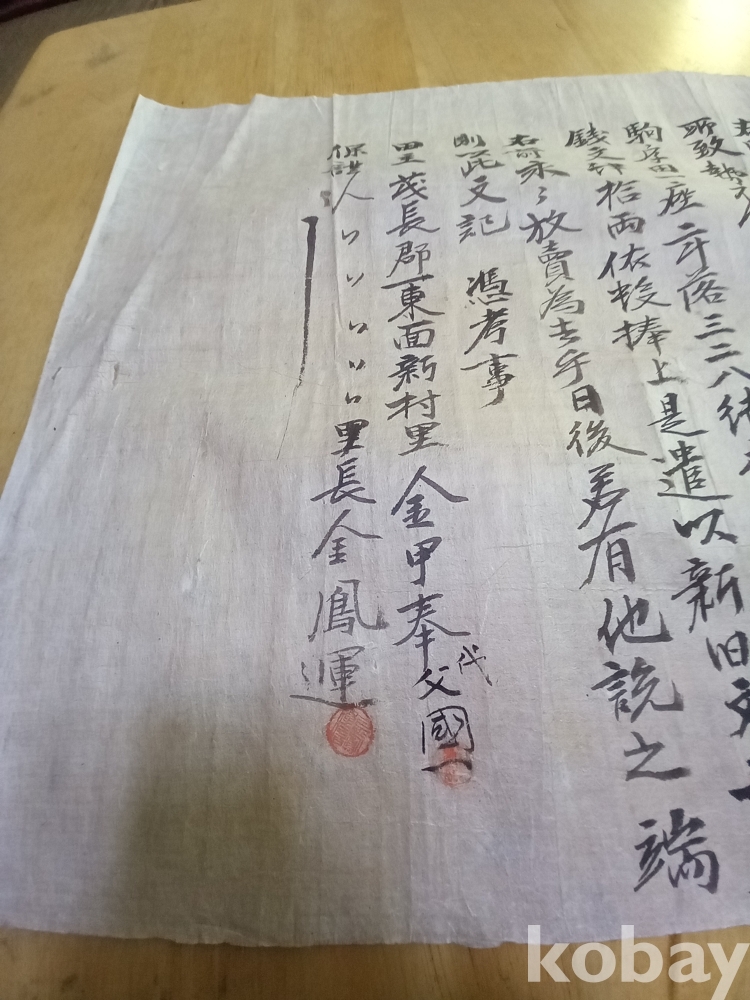 所致勢
駒字田一座二斗落三二八
錢文 拾兩依數捧上是遣以新旧文
右前永々放賣為去乎日後若有他說之端
則此文記 憑考事
茂長郡一東面新村里金甲奉代父國一
保證人 〃 〃 〃 〃 〃 里長金鳳運
kobay